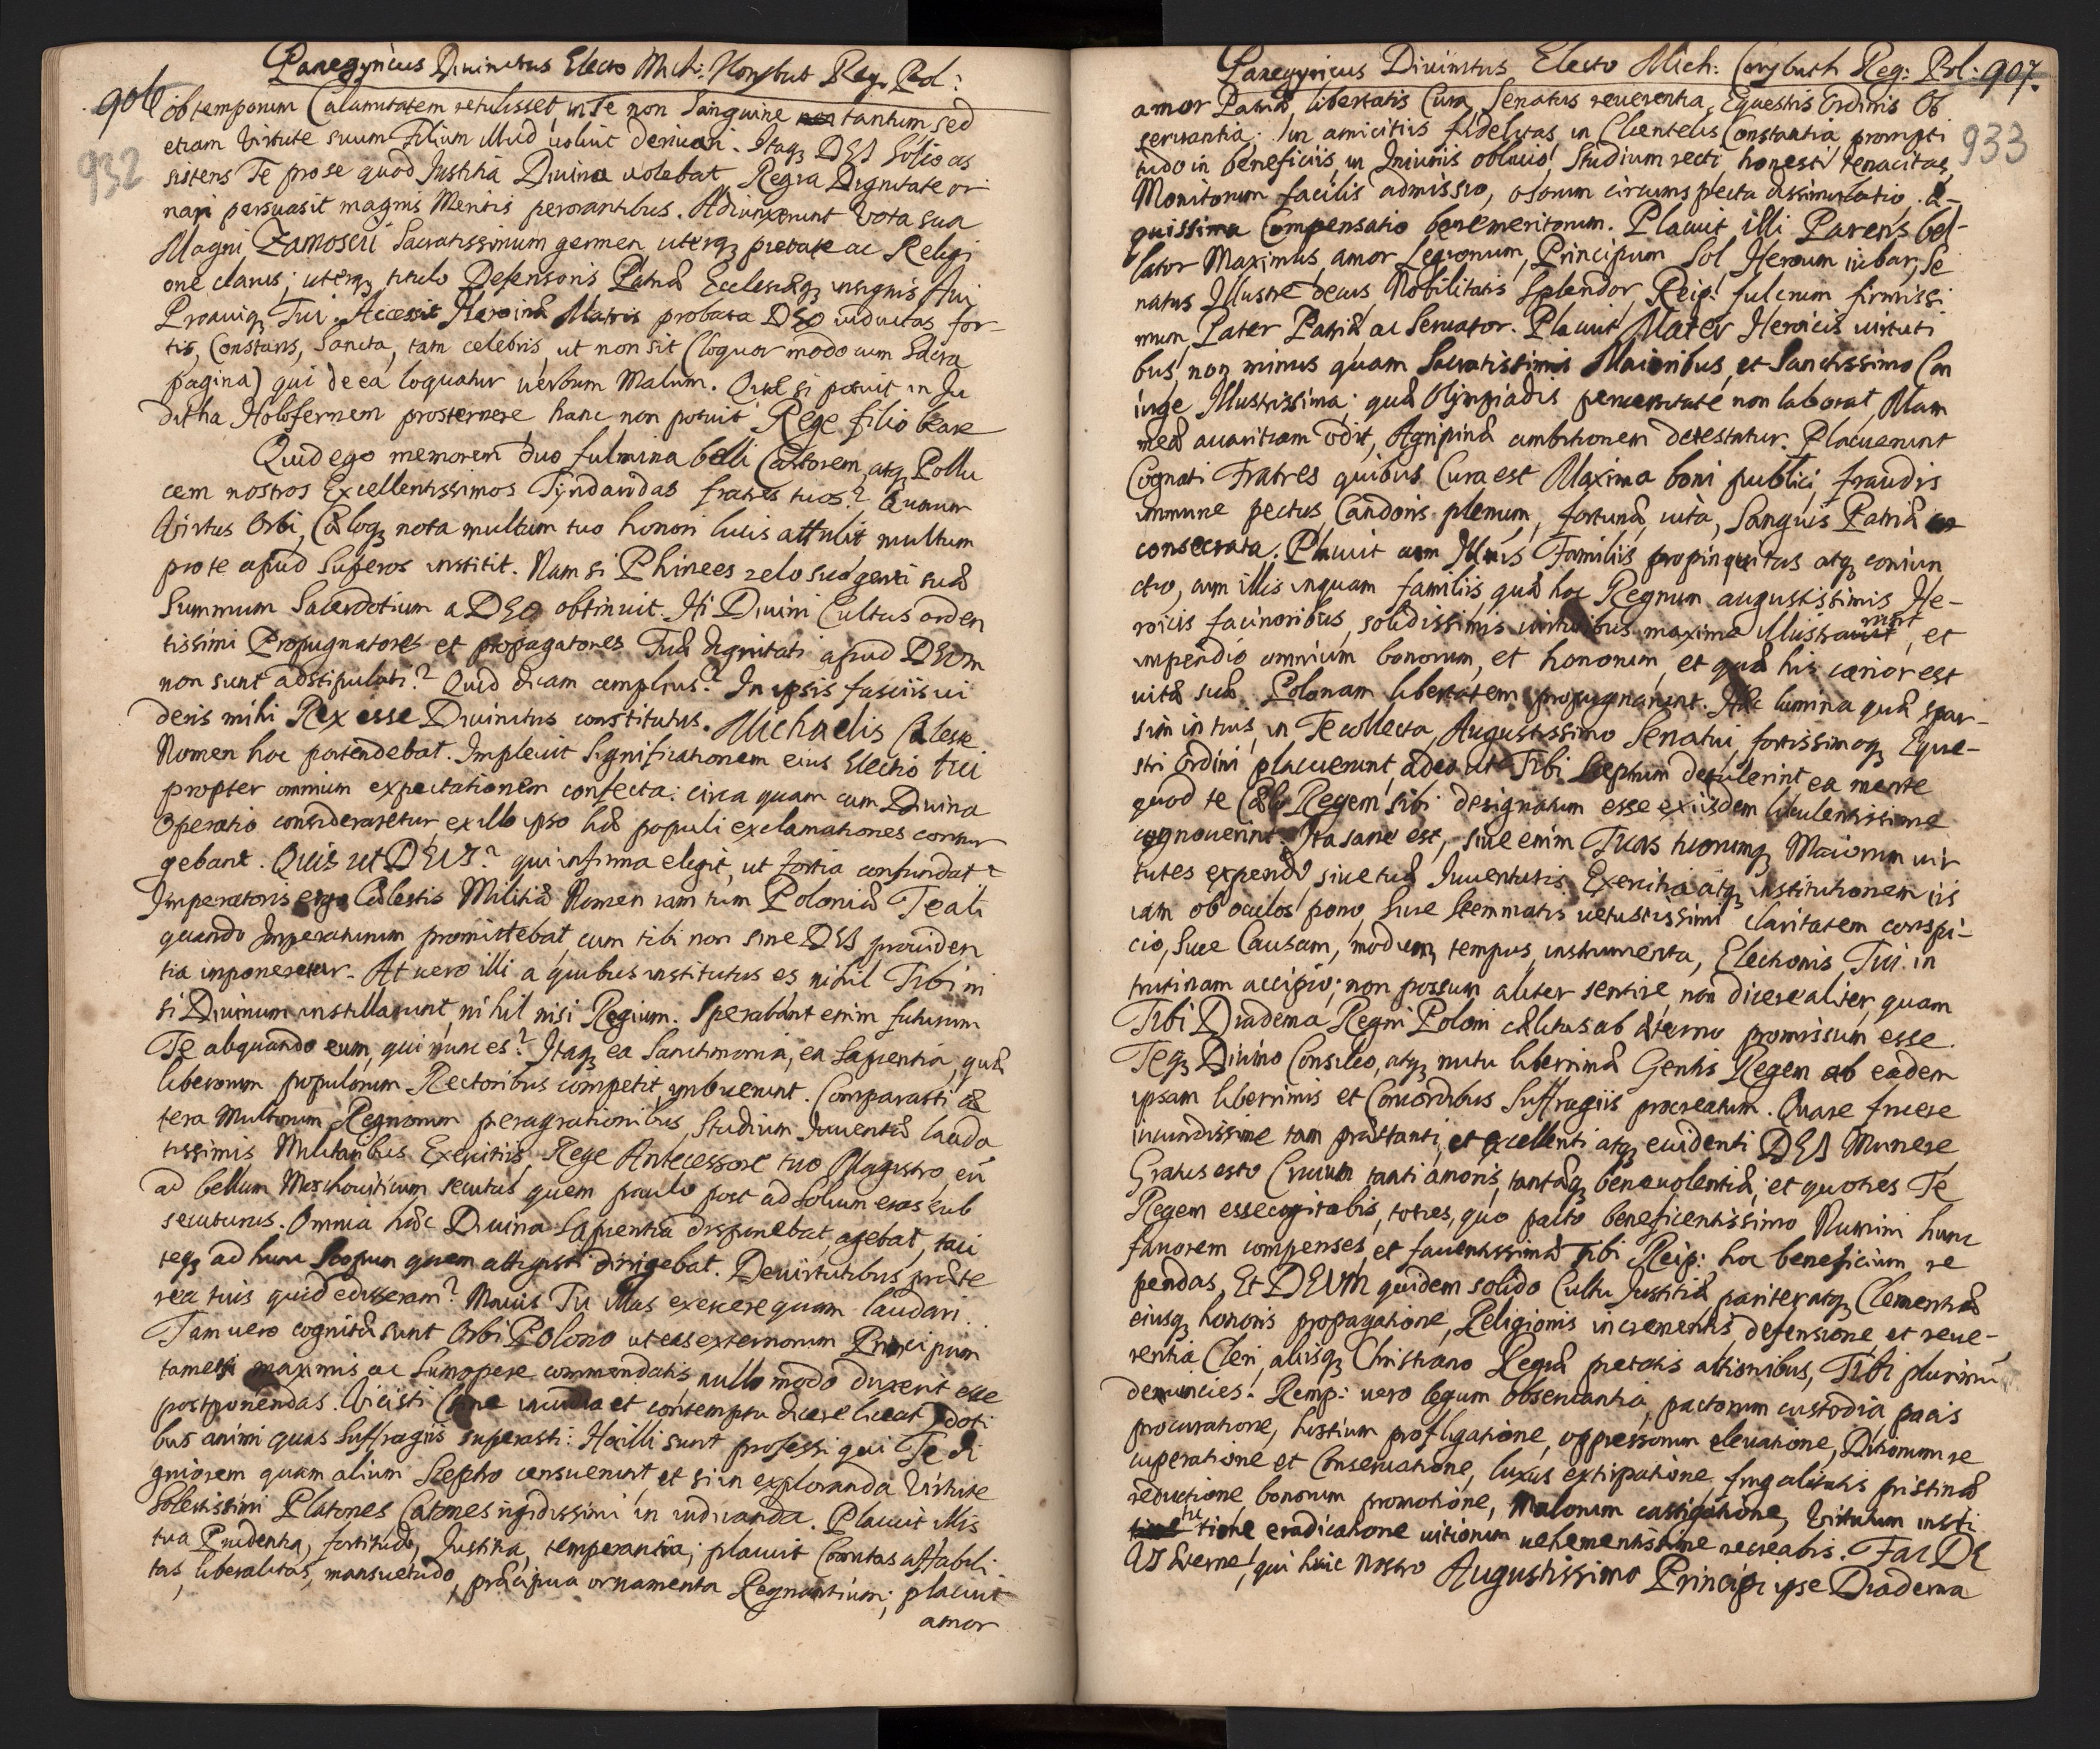 906 Panegyricus Divinitus Electo Mich: Korybut Reg. Pol:
932
ob temporum Calamitatem retulisset in Te non Sanguine tantum sed
etiam Virtute suum Filium illud voluit derivari. Itaq3 DEI Solio as
sistens Te pro se quod Justitia Divina volebat Regia Dignitate or
nari persuasit magnis Meritis perorantibus. Adiunxerunt Vota sua
Magni Zamoscii Sacratissimum germen uterq3 pietate ac Religi
one clarus; uterq3 titulo Defensoris Patriæ Ecclesiæq3 insignis Avi
Proaviq3 Tui. Accessit Heroinæ Matris probata DEO viduitas for-
tis, Constans, Sancta, tam celebris, ut non sit (loquor modo cum Sacra
pagina) qui de ea loquatur verbum Malum. Quæ si potuit in Ju
ditha Holofernem prosternere hanc non potuit Rege filio beare
Quid ego memorem duo fulmina belli Castorem, atq3 Pollu
cem nostros Excellentissimos Tyndaridas fratres tuos? Quorum
Virtus Orbi, Cæloq3 nota multum tuo honori lucis attulit multum
pro te apud Superos institit. Nam si Phinees zelo suo genti suæ
Summum Sacerdotium a DEO obtinuit. Hi Divini Cultus arden
tissimi Propugnatores et propagatores Tuæ dignitati apud DEUM
non sunt adstipulati? Quid dicam amplius? In ipsis fasciis vi
deris mihi Rex esse Divinitus constitutus. Michaelis Cæleste
Nomen hoc portendebat. Implevit Significationem eius Electio tui
propter omnium expectationem confecta: circa quam cum Divina
Operatio consideraretur, ex illo ipso hæ populi exclamationes consur
gebant. Quis ut DEUS? qui infirma elegit, ut fortia confundat?
Imperatoris ergo Cælestis Militiæ Nomen iam tum Poloniæ Te ali
quando Imperaturum promittebat, cum tibi non sine DEI providen
tia imponeretur. At vero illi a quibus institutus es nihil Tibi ni
si Divinum instillarunt, nihil nisi Regium. Sperabant enim futurum
Te aliquando eum, qui nunc es? Itaq3 ea Sanctimonia, ea Sapientia, quæ
liberorum populorum Rectoribus competit, imbuerunt. Comparasti cæ
tera Multorum Regnorum peragrationibus, Studium Juventæ lauda
tissimis Militaribus Exercitiis, Rege Antecessore tuo Magistro, eū
ad bellum Moschoviticum secutus quem paulo post ad Solium eras sub
secuturus. Omnia hæc Divina Sapientia disponebat, agebat, taci
teq3 ad hunc Scopum quem attigisti dirigebat. De virtutibus præte
rea tuis quid edisseram? Mavis Tu illas exercere quam laudari.
Iam vero cognitæ sunt Orbi Polono ut eas externorum Principum
tametsi maximis ac Sumopere commendatis nullo modo duxerit esse
postponendas. Vicisti (sine invidia et contemptu dicere liceat) doti
bus animi quos Suffragiis superasti: Hæc illi sunt professi qui Te di
gniorem quam alium Sceptro censuerunt, et si in exploranda Virtute
Solertissimi Platones Catones rigidissimi in iudicanda. Placuit illis
tua Prudentia, fortitudo, Justitia, temperantia; placuit Comitas affabili
tas, liberalitas, mansuetudo, præcipua ornamenta Regnantium; placuit
amor
Panegyricus Divinitus Electo Mich: Corybuth Reg: Pol: 907.
933
amor Patriæ, libertatis Cura, Senatus reverentia, Equestris Ordinis Ob
servantia; in amicitiis fidelitas, in Clientelis Constantia, prompti
tudo in beneficiis, in Iniuriis oblivio, Studium recti, honesti tenacitas,
Monitorum facilis admissio, osorum circumspecta dissimulatio. Æ-
quissima Compensatio benemeritorum. Placuit illi Parens bel-
lator Maximus, amor Legionum, Principum Sol, Heroum iubar, Se
natus Illustre decus, Nobilitatis Splendor, Reip: fulcrum firmissi
mum, Pater Patriæ ac Servator. Placuit Mater Heroicis virtuti
bus, non minus quam Sacratissimis Maioribus, et Sanctissimo Con
iuge Illustrissima; quæ Olympiadis perversitate non laborat, Mam
meæ avaritiam odit, Agripinæ ambitionem detestatur. Placuerunt
Cognati Fratres quibus Cura est Maxima boni publici, fraudis
immune pectus, Candoris plenum, fortunæ, vita, Sanguis Patriæ
consecrata. Placuit cum Illis Familiis propinquitas atq3 coniun
ctio, cum illis inquam familiis quæ hoc Regnum augustissimis He-
roicis facinoribus, solidissimis virtutibus maxime illustrarunt, et
impendio omnium bonorum, et honorum, et quæ his carior est
vitæ suæ Polonam libertatem propugnarunt. Hæc lumina quæ spar-
sim in tuis, in Te collecta, Augustissimo Senatui, fortissimoq3 Eque-
stri Ordini placuerunt, adeo ut Tibi Sceptrum detulerint ea mente
quod te Cælo Regem sibi designatum esse ex iisdem luculentissime
cognoverint. Ita sane est, sive enim Tuas tuorumq3 Maiorum vir
tutes expendo, sive tuæ Iuventutis Exercitia atq3 institutionem iis
iam ob oculos pono, Sive Stemmatis vetustissimi claritatem conspi-
cio, Sive Causam, modum, tempus, instrumenta, Electionis Tui in
trutinam accipio; non possum aliter sentire, non dicere aliter, quam
Tibi Diadema Regni Poloni cælitus ab æterno promissum esse.
Teq3 Divino Consilio, atq3 nutu liberrimæ Gentis Regem ab eadem
ipsam liberrimis et Concordibus Suffragiis procreatum. Quare fruere
iucundissime tam præstanti, et excellenti atq3 evidenti DEI Munere
Gratus esto Civium tanti amoris, tantæq3 benevolentiæ, et quoties Te
Regem esse cogitabis, toties, quo pacto beneficentissimo Numini hunc
favorem compenses, et faventissimæ tibi Reip: hoc beneficium re
pendas, Et DEUM quidem solido Cultu Justitiæ pariter atq3 Clementiæ
eiusq3 honoris propagatione, Religionis incrementis defensione et reve-
rentia Cleri, aliisq3 Christiano Regiæ pietatis actionibus, Tibi plurimū
devincies. Remp: vero legum observantia, pactorum custodia, pacis
procuratione, hostium profligatione, oppressorum elevatione, Ditionum re
cuperatione et Conservatione, luxus extirpatione, frugalitatis pristinæ
reductione, bonorum promotione, Malorum castigatione, Virtutum insti
tutione eradicatione vitiorum vehementissime recreabis. Fac DE
US æterne, qui huic nostro Augustissimo Principi ipse Diadema